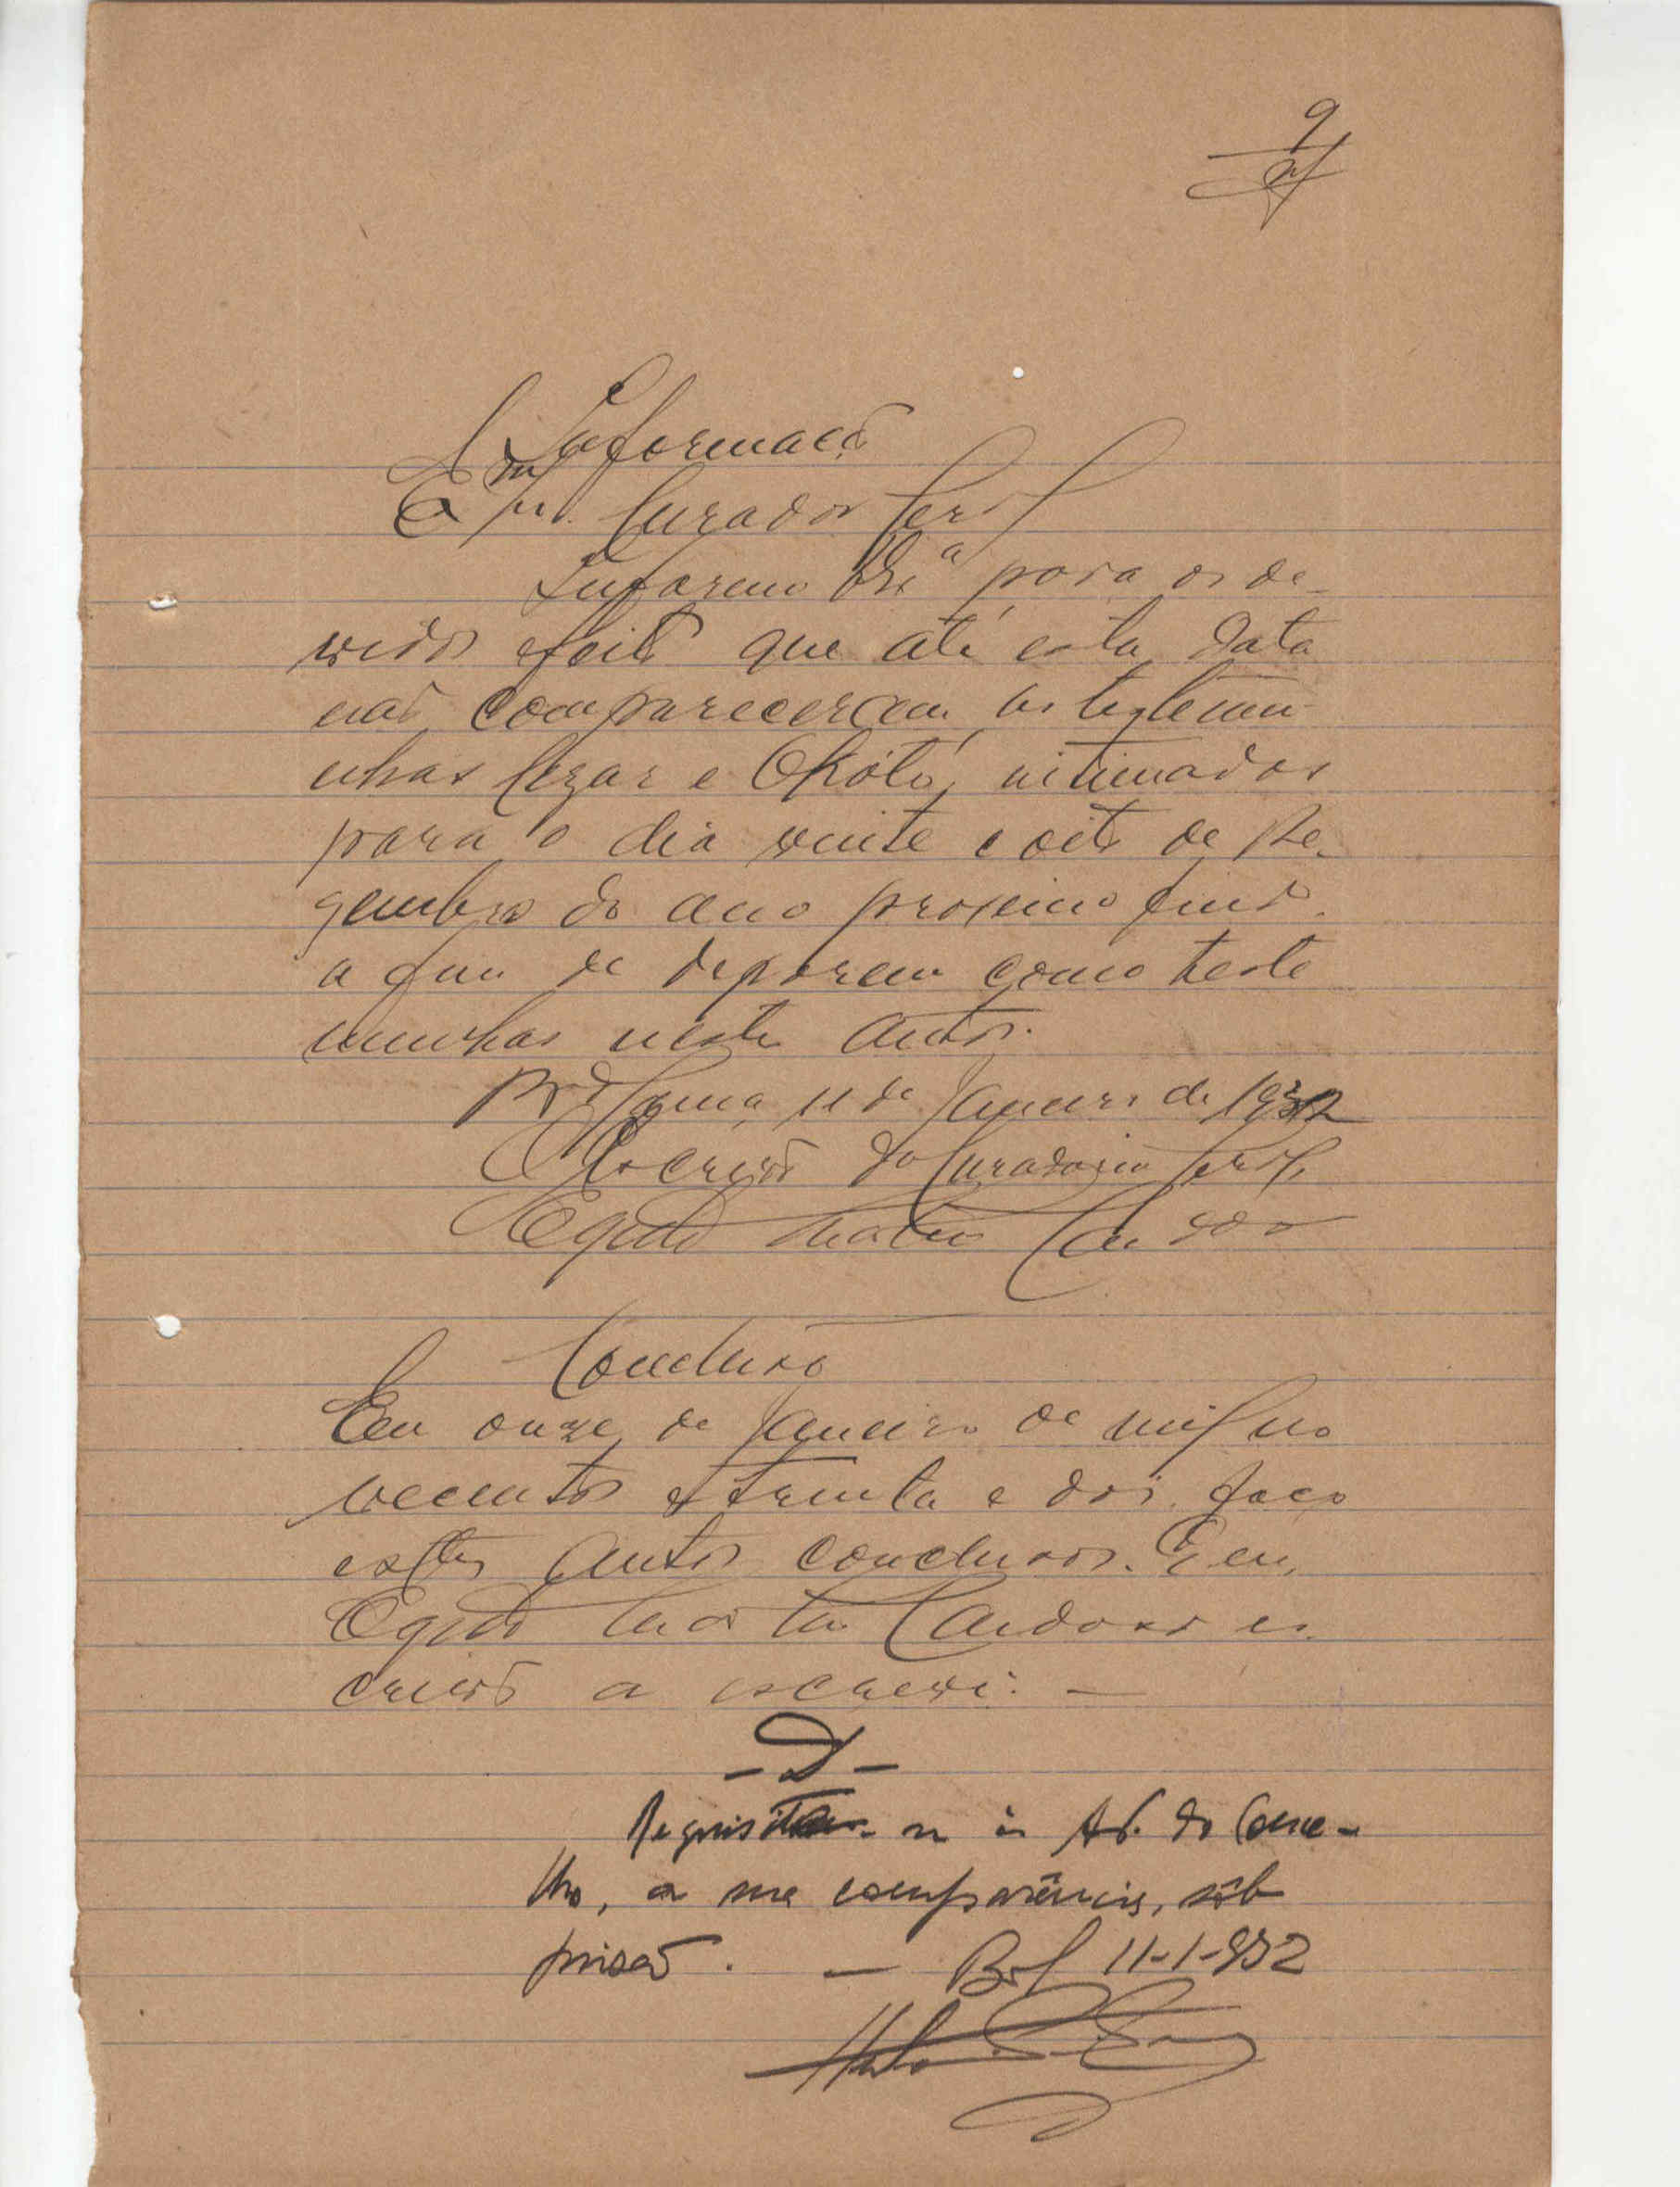 9
Informação
Exmo. Snr. Curador Geral
Informo Vexa para os de-
vidos efeitos que até esta data
não compareceram as testemu-
nhas Cezar e Okótó, intimados
para o dia vinte e oito de De-
zembro do ano proximo findo
a fim de deporem como teste
munhas nestes autos.
11 de Janeiro de 1932
O Escrivão da Curadoria Geral,
Egidio Cardoso
Conclusão
Em onze de Janeiro de mil no
vecentos e trinta e dois, faço
estes autos conclusos. E eu,
Egidio Cardoso es
crivão a escrevi. —
- D -
Requisite-se à Ad. do Conce-
lho, a sua comparência, sob
prisão. — Bol 11-1-932